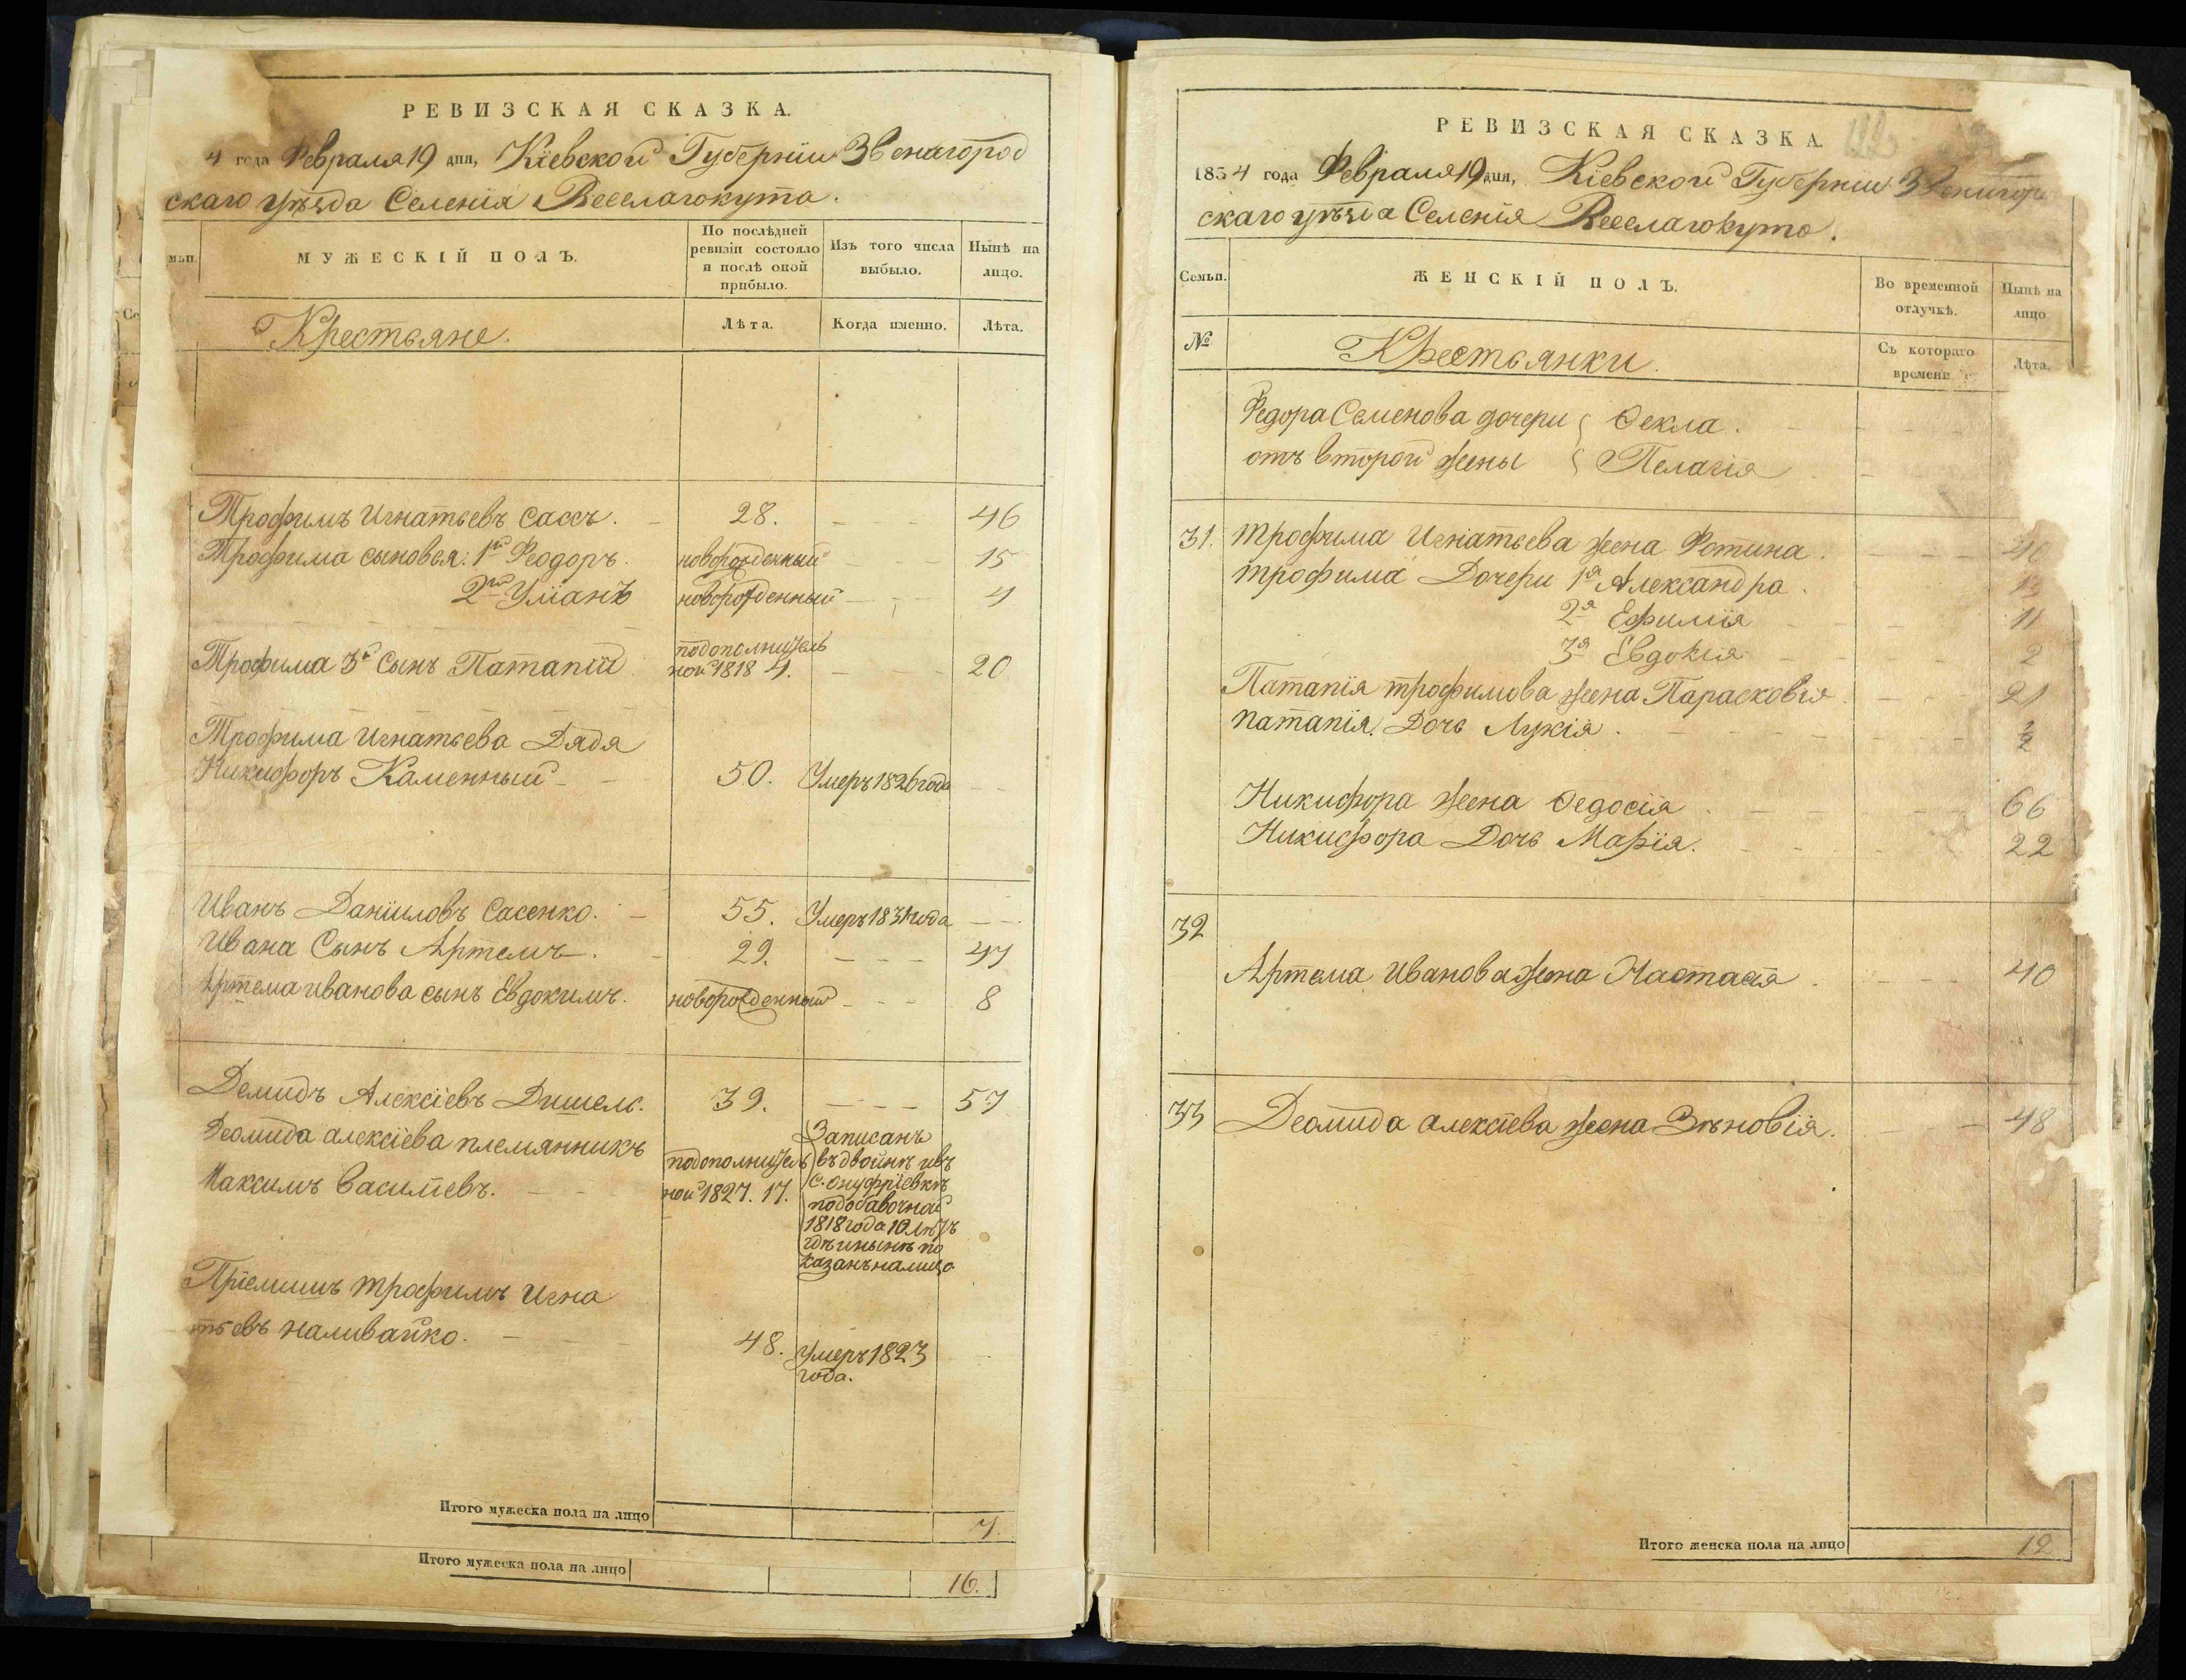 РЕВИЗСКАЯ СКАЗКА.
4 года Февраля 19 дня, Кіевской Губерніи Звенигород
скаго уѣзда Селенія Веселагокута.
мьи.
МУЖЕСКІЙ ПОЛЪ.
По послѣдней
ревизіи состояло
и послѣ оной
прибыло.
Изъ того числа
выбыло.
Нынѣ на
лицо.
Крестьяне.
Лѣта.
Когда именно.
Лѣта.
Трофимъ Игнатьевъ Сасъ. 28. 46
Трофима сыновья: 1й Феодоръ. новорожденный 15
2й Уліанъ новорожденный 4
подополнитель
Трофима 3й Сынъ Патапій ной 1818 4. 20
Трофима Игнатьева Дядя
Никифоръ Каменный 50. Умеръ 1826 года
Иванъ Даніиловъ Сасенко. 55. Умеръ 1831 года
Ивана Сынъ Артемъ. 29. 47
Артема иванова сынъ Евдокимъ. новорожденный 8
Демидъ Алексіевъ Дишель. 39. 57
Деомида алексіева племянникъ
Максимъ Василіевъ.
подополнитель
ной 1827. 17.
Записанъ
въдвойнѣ ивъ
с. Онуфріевкѣ
подобавочной
1818 года 10 лѣтъ
гдѣ и нынѣ по
казанъ налицо
Пріемышъ Трофимъ Игна
тьевъ Наливайко.
48. Умеръ 1823
года.
Итого мужеска пола на лицо 7.
Итого мужеска пола на лицо 16.
РЕВИЗСКАЯ СКАЗКА.
1834 года Февраля 19 дня, Кіевской Губерніи Звенигоро
скаго уѣзда Селенія Веселагокута.
Семьи.
ЖЕНСКІЙ ПОЛЪ.
Во временной
отлучкѣ.
Нынѣ на
лицо
№
Крестьянки.
Съ котораго
времени
Лѣта.
Федора Семенова дочери Ѳекла.
отъ второй жены Пелагія
31. Трофима Игнатьева жена Фотина. 40
Трофима Дочери 1я Александра. 13
2я Ефимія 11
3я Евдокія 2
Патапія трофимова жена Парасковія 21
патапія Дочь Лукія. ½
Никифора жена Ѳедосія 66
Никифора Дочь Марія. 22
32
Артема Иванова жена Настасія 40
33 Деомида алексіева жена Зѣновія. 48
Итого женска пола на лицо 12